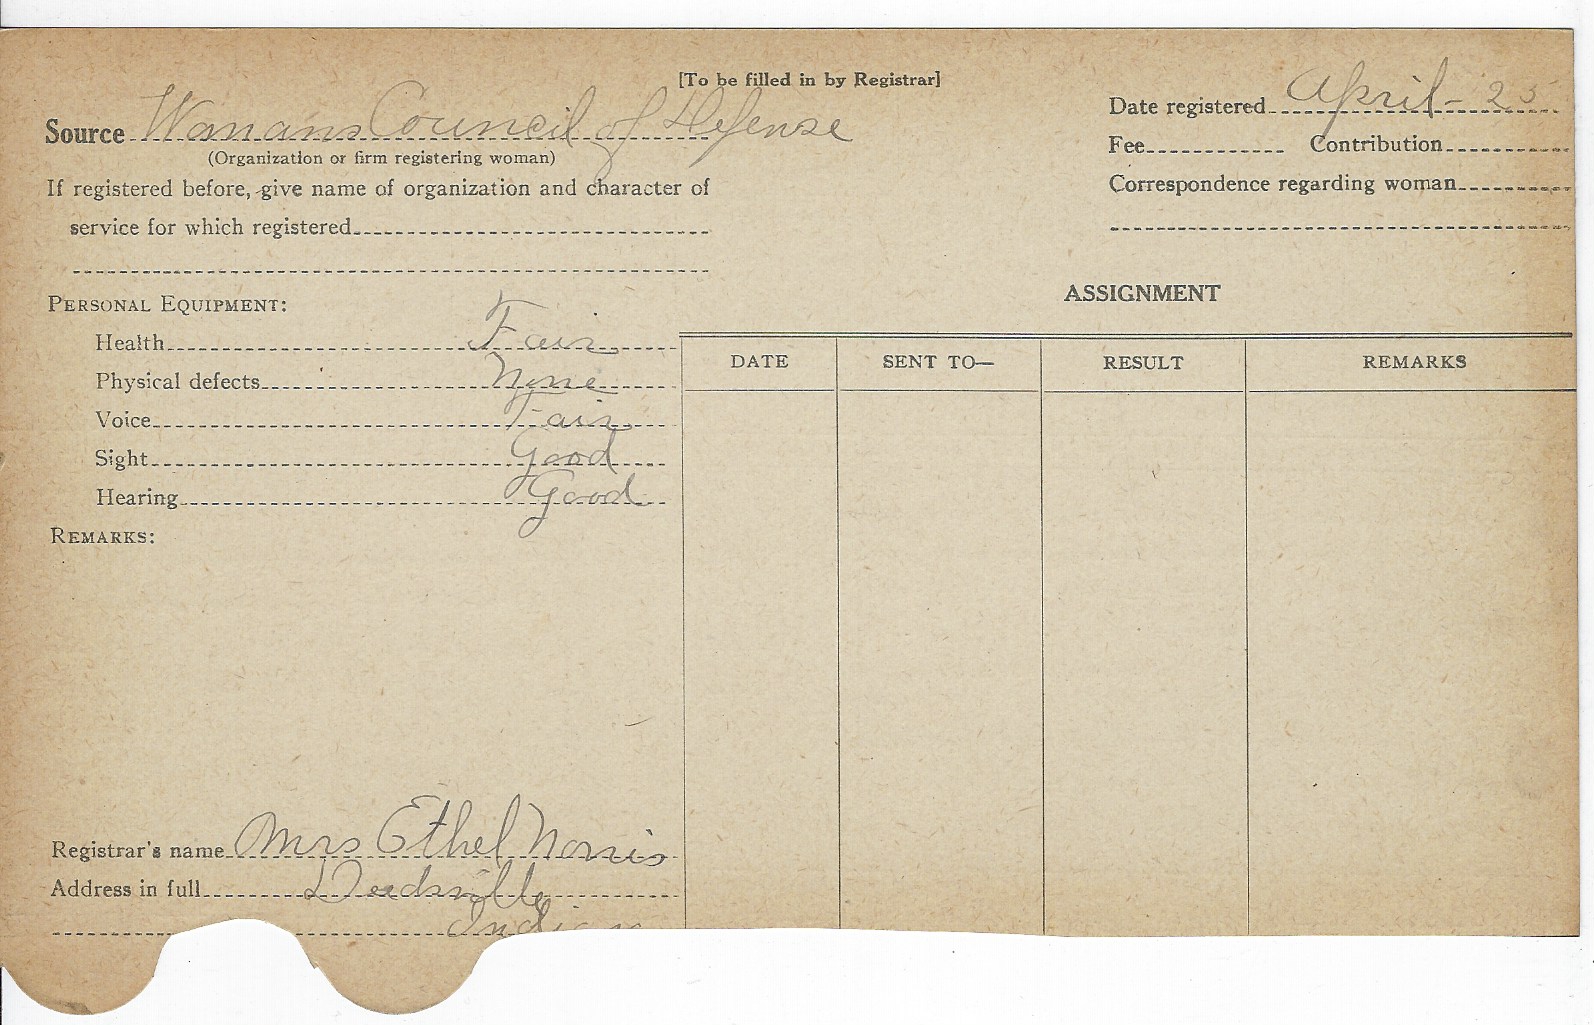 [To be filled in by Registrar]
Source Womans Council of Defense
(Organization or firm registering woman)
If registered before, give name of organization and character of
service for which registered
Date registered April - 25
Fee Contribution
Correspondence regarding woman
PERSONAL EQUIPMENT:
Health Fair
Physical defects None
Voice Fair
Sight Good
Hearing Good
REMARKS:
ASSIGNMENT
DATE SENT TO— RESULT REMARKS
Registrar's name Mrs Ethel Norris
Address in full Deedsville
Indiana